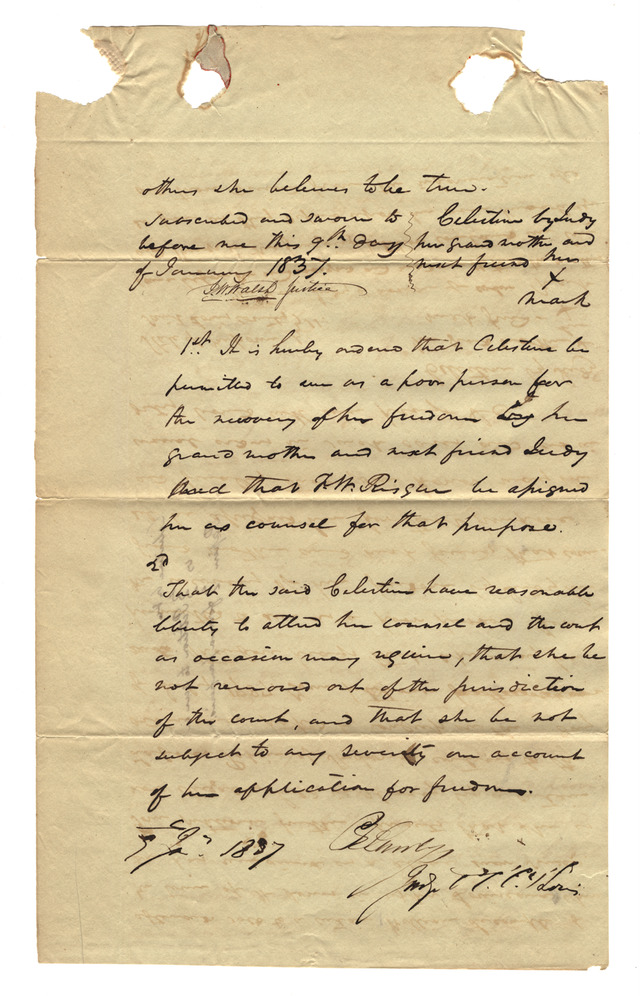 others she believes to be true.
Subscribed and sworn to
before me this 9th day
of January 1837.
J. W. Walsh Justice
Celestine by Judy
her grand mother and
next friend her
X
mark
1st. It is hereby ordered that Celestine be
permitted to sue as a poor person for
the recovery of her freedom by her
grand mother and next friend Judy
And that F. W. Risque be assigned
her as counsel for that purpose.
2d
That the said Celestine have reasonable
liberty to attend her counsel and the court
as occasion may require, that she be
not removed out of the jurisdiction
of the court, and that she be not
subject to any severity on account
of her application for freedom.
9 Jay. 1837
Judge St. Louis